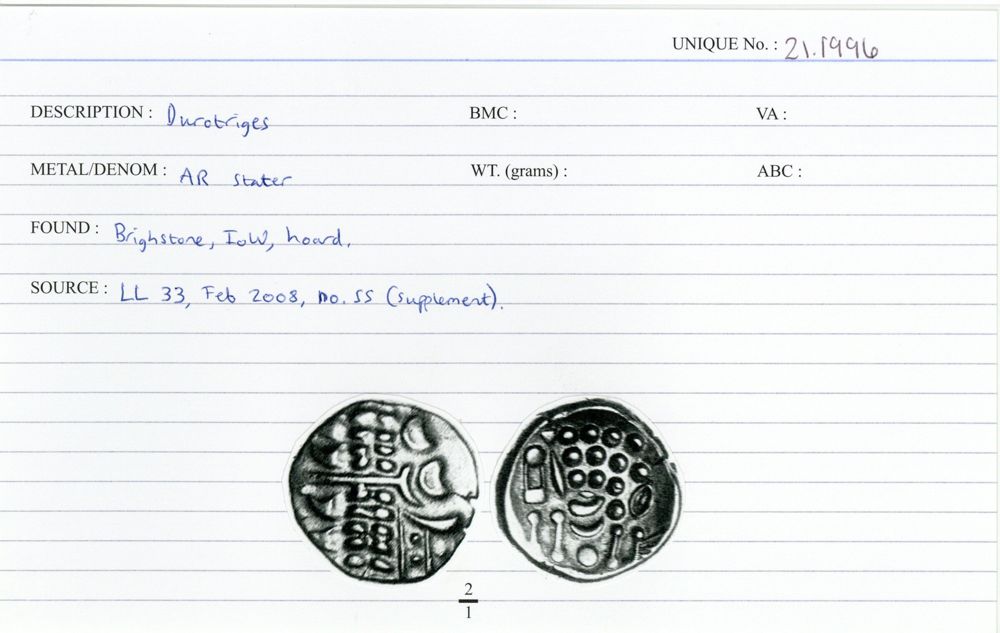 UNIQUE No. : 21.1996
DESCRIPTION : Durotriges BMC : VA :
METAL/DENOM : AR stater WT. (grams) : ABC :
FOUND : Brighstone, IoW, hoard.
SOURCE : LL 33, Feb 2008, no. 55 (supplement).
2
1